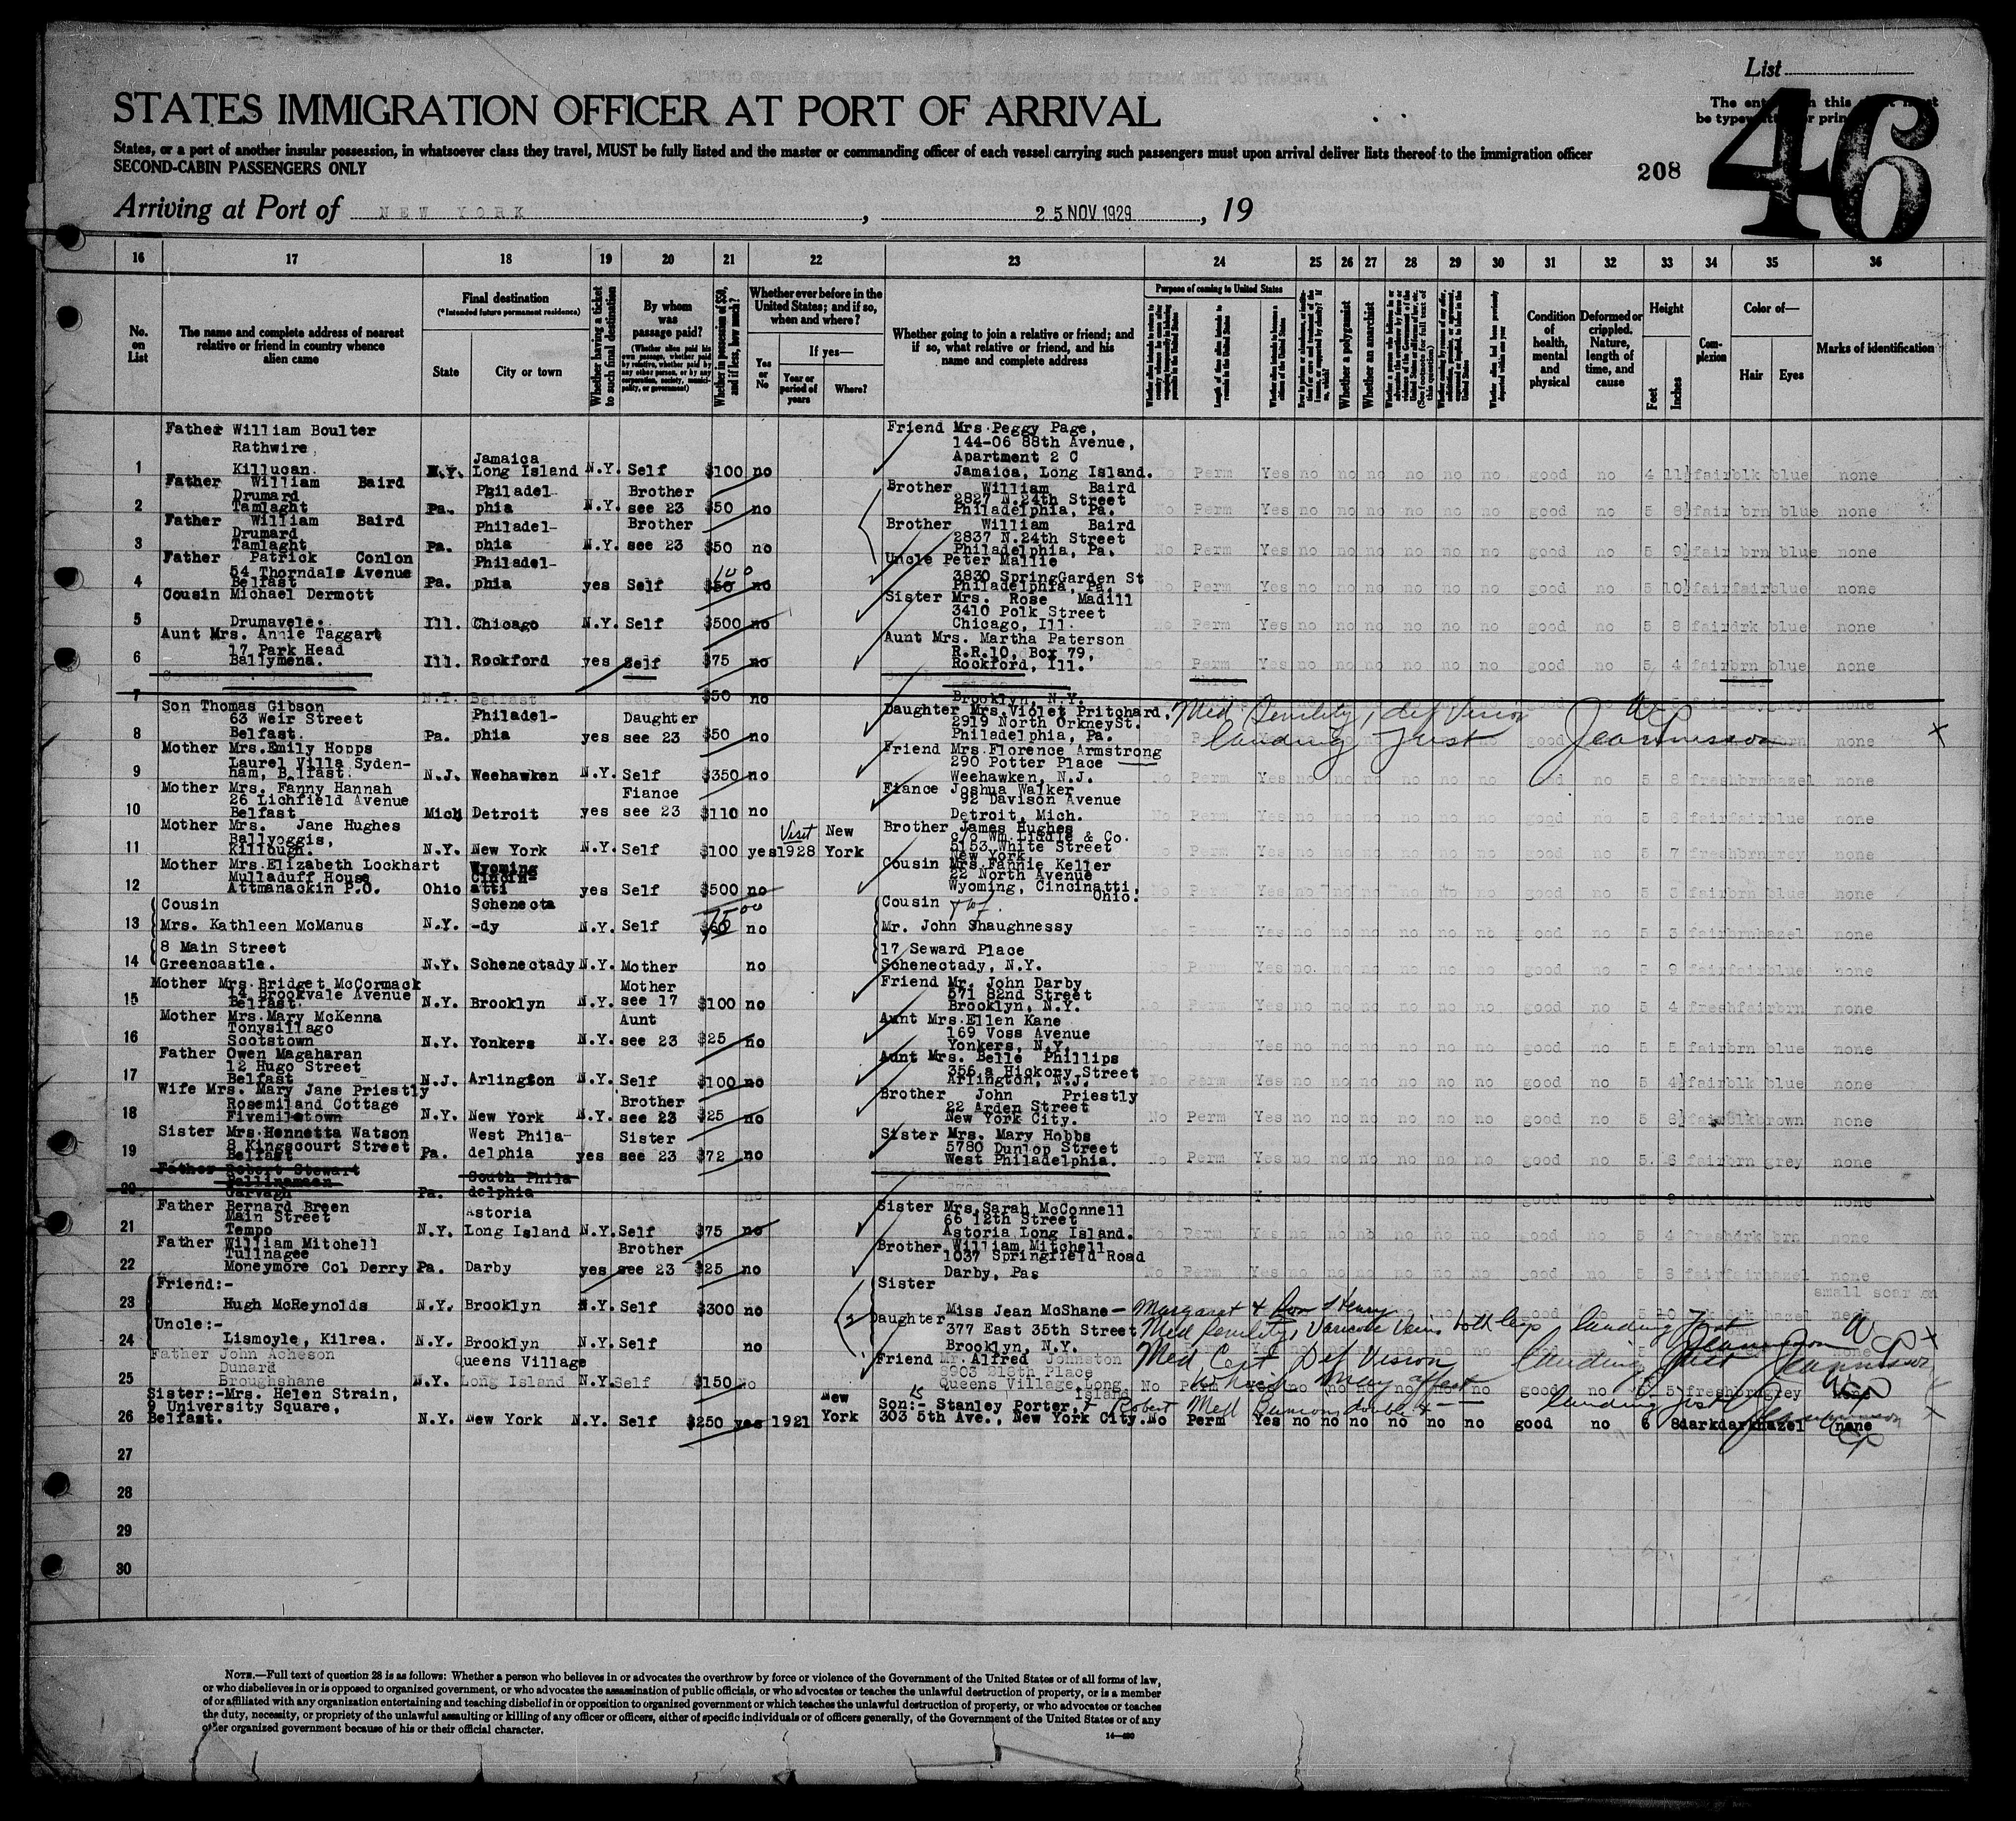 List
The ent
be typew
STATES IMMIGRATION OFFICER AT PORT OF ARRIVAL
States, or a port of another insular possession, in whatsoever class they travel, MUST be fully listed and the master or commanding officer of each vessel carrying such passengers must upon arrival deliver lists thereof to the immigration officer
SECOND-CABIN PASSENGERS ONLY
208
46
Arriving at Port of NEW YORK , 25 NOV 1929 , 19
16 17 18 19 20 21 22 23 24 25 26 27 28 29 30 31 32 33 34 35 36
No. on List
The name and complete address of nearest relative or friend in country whence alien came
Final destination
(*Intended future permanent residence)
State
City or town
Whether having a ticket to such final destination
By whom was passage paid?
(Whether alien paid his own passage, whether paid by relative, whether paid by any other person, or by any corporation, society, municipality, or government)
Whether in possession of $50, and if less, how much?
Whether ever before in the United States; and if so, when and where?
Yes or No
If yes—
Year or period of years
Where?
Whether going to join a relative or friend; and if so, what relative or friend, and his name and complete address
Purpose of coming to United States
Length of time alien intends to remain in the United States
Whether alien intends to become a citizen of the United States
Whether a polygamist
Whether an anarchist
Condition of health, mental and physical
Deformed or crippled. Nature, length of time, and cause
Height
Feet
Inches
Complexion
Color of—
Hair
Eyes
Marks of identification
Father William Boulter Friend Mrs. Peggy Page,
Rathwire 144-06 88th Avenue,
Jamaica Apartment 2 C
1 Killucan. N.Y. Long Island N.Y. Self $100 no Jamaica, Long Island. No Perm Yes no no no no no no good no 4 11½ fair blk blue none
Father William Baird Philadel- Brother Brother William Baird
Drumard 2827 N.24th Street
2 Tamlaght Pa. phia N.Y. see 23 $50 no Philadelphia, Pa. No Perm Yes no no no no no no good no 5 8½ fair brn blue none
Father William Baird Philadel- Brother Brother William Baird
Drumard 2837 N.24th Street
3 Tamlaght Pa. phia N.Y. see 23 $50 no Philadelphia, Pa. No Perm Yes no no no no no no good no 5 9½ fair brn blue none
Father Patrick Conlon Philadel- Uncle Peter Mallie
54 Thorndale Avenue 100 3830 SpringGarden St
4 Belfast Pa. phia yes Self $50 no Philadelphia, Pa. No Perm Yes no no no no no no good no 5 10½ fair fair blue none
Cousin Michael Dermott Sister Mrs. Rose Madill
3410 Polk Street
5 Drumavele. Ill. Chicago N.Y. Self $500 no Chicago, Ill. No Perm Yes no no no no no no good no 5 8 fair drk blue none
Aunt Mrs. Annie Taggart Aunt Mrs. Martha Paterson
17 Park Head R.R.10, Box 79,
6 Ballymena. Ill. Rockford yes Self $75 no Rockford, Ill. No Perm Yes no no no no no no good no 5 4 fair brn blue none
7 N.Y. Belfast $50 no Brooklyn, N.Y. none
Son Thomas Gibson Philadel- Daughter Daughter Mrs. Violet Pritchard.
63 Weir Street 2919 North OrkneySt. Med Senility, def Vision
8 Belfast. Pa. phia yes see 23 $50 no Philadelphia, Pa. landing Just none
Mother Mrs. Emily Hopps Friend Mrs. Florence Armstrong
Laurel Villa Syden- 290 Potter Place
9 ham, Belfast. N.J. Weehawken N.Y. Self $350 no Weehawken, N.J. No Perm Yes no no no no no no good no 5 8 fresh brn hazel none
Mother Mrs. Fanny Hannah Fiance Fiance Joshua Walker
26 Lichfield Avenue 92 Davison Avenue
10 Belfast Mich Detroit yes see 23 $110 no Detroit, Mich. No Perm Yes no no no no no no good no 5 6 fair fair blue none
Mother Mrs. Jane Hughes Visit New Brother James Hughes
Ballyoggis, c/o Wm. Liddle & Co.
5153 White Street
11 Killough. N.Y. New York N.Y. Self $100 yes 1928 York New York No Perm Yes no no no no no no good no 5 7 fresh brn grey none
Mother Mrs. Elizabeth Lockhart Wyoming Cousin Mrs. Fannie Keller
Mulladuff House Cincin- 22 North Avenue
12 Attmanackin P.O. Ohio atti yes Self $500 no Wyoming, Cincinatti, Ohio. No Perm Yes no no no no no no good no 5 3 fair brn blue none
Cousin Schenecta 7500 Cousin
13 Mrs. Kathleen McManus N.Y. -dy N.Y. Self $60 no Mr. John Shaughnessy No Perm Yes no no no no no no good no 5 3 fair brn hazel none
8 Main Street 17 Seward Place
14 Greencastle. N.Y. Schenectady N.Y. Mother no Schenectady, N.Y. No Perm Yes no no no no no no good no 5 9 fair fair blue none
Mother Mrs. Bridget McCormack Mother Friend Mr. John Darby
14 Brookvale Avenue 571 82nd Street
15 Belfast. N.Y. Brooklyn N.Y. see 17 $100 no Brooklyn, N.Y. No Perm Yes no no no no no no good no 5 4 fresh fair brn none
Mother Mrs. Mary McKenna Aunt Aunt Mrs. Ellen Kane
Tonysillago 169 Voss Avenue
16 Scotstown N.Y. Yonkers N.Y. see 23 $25 no Yonkers, N.Y. Yes no no no no no no good no 5 5 fair brn blue none
Father Owen Magaharan Aunt Mrs. Belle Phillips
12 Hugo Street 356 a Hickory Street
17 Belfast N.J. Arlington N.Y. Self $100 no Arlington, N.J. No Perm Yes no no no no no no good no 5 4½ fair blk blue none
Wife Mrs. Mary Jane Priestly Brother Brother John Priestly
Rosemiland Cottage 22 Arden Street
18 Fivemiletown N.Y. New York N.Y. see 23 $25 no New York City. No Perm Yes no no no no no no good no 5 6½ fair blk brown none
Sister Mrs. Hennetta Watson West Phila- Sister Sister Mrs. Mary Hobbs
8 Kingscourt Street 5780 Dunlop Street
19 Belfast Pa. delphia yes see 23 $72 no West Philadelphia. No Perm Yes no no no no no no good no 5 6 fair brn grey none
Father Robert Stewart South Phila
Ballinameen
20 Garvagh Pa. delphia none
Father Bernard Breen Astoria Sister Mrs. Sarah McConnell
Main Street 66 12th Street
21 Tempo N.Y. Long Island N.Y. Self $75 no Astoria Long Island. No Perm Yes no no no no no no good no 5 4 fresh drk brn none
Father William Mitchell Brother Brother William Mitchell
Tullnagee 1037 Springfield Road
22 Moneymore Col Derry Pa. Darby yes see 23 $25 no Darby, Pas No Perm Yes no no no no no no good no 5 8 fair fair hazel none
Friend:- Sister small scar on
23 Hugh McReynolds N.Y. Brooklyn N.Y. Self $300 no Miss Jean McShane- Margaret + neck
Uncle:- Daughter 377 East 35th Street Med Senility, Varicose Veins both legs landing Just
24 Lismoyle, Kilrea. N.Y. Brooklyn N.Y. Self no Brooklyn, N.Y.
Father John Acheson Queens Village Friend Mr. Alfred Johnston Med Cert Def Vision landing Just
Dunard 218th Place which may affect
25 Broughshane N.Y. Long Island N.Y. Self $150 No Queens Village, Long Island No Perm good no 5 5 fresh brn grey none
Sister:-Mrs. Helen Strain, New Son:- Stanley Porter, + Robert Med Bunions double landing Just
9 University Square,
26 Belfast. N.Y. New York N.Y. Self $250 yes 1921 York 303 5th Ave., New York City. No Perm Yes no no no no no no good no 6 8 dark dark hazel none
27
28
29
30
NOTE.—Full text of question 28 is as follows: Whether a person who believes in or advocates the overthrow by force or violence of the Government of the United States or of all forms of law,
or who disbelieves in or is opposed to organized government, or who advocates the assassination of public officials, or who advocates or teaches the unlawful destruction of property, or is a member
of or affiliated with any organization entertaining and teaching disbelief in or opposition to organized government or which teaches the unlawful destruction of property, or who advocates or teaches
the duty, necessity, or propriety of the unlawful assaulting or killing of any officer or officers, either of specific individuals or of officers generally, of the Government of the United States or of any
other organized government because of his or their official character.